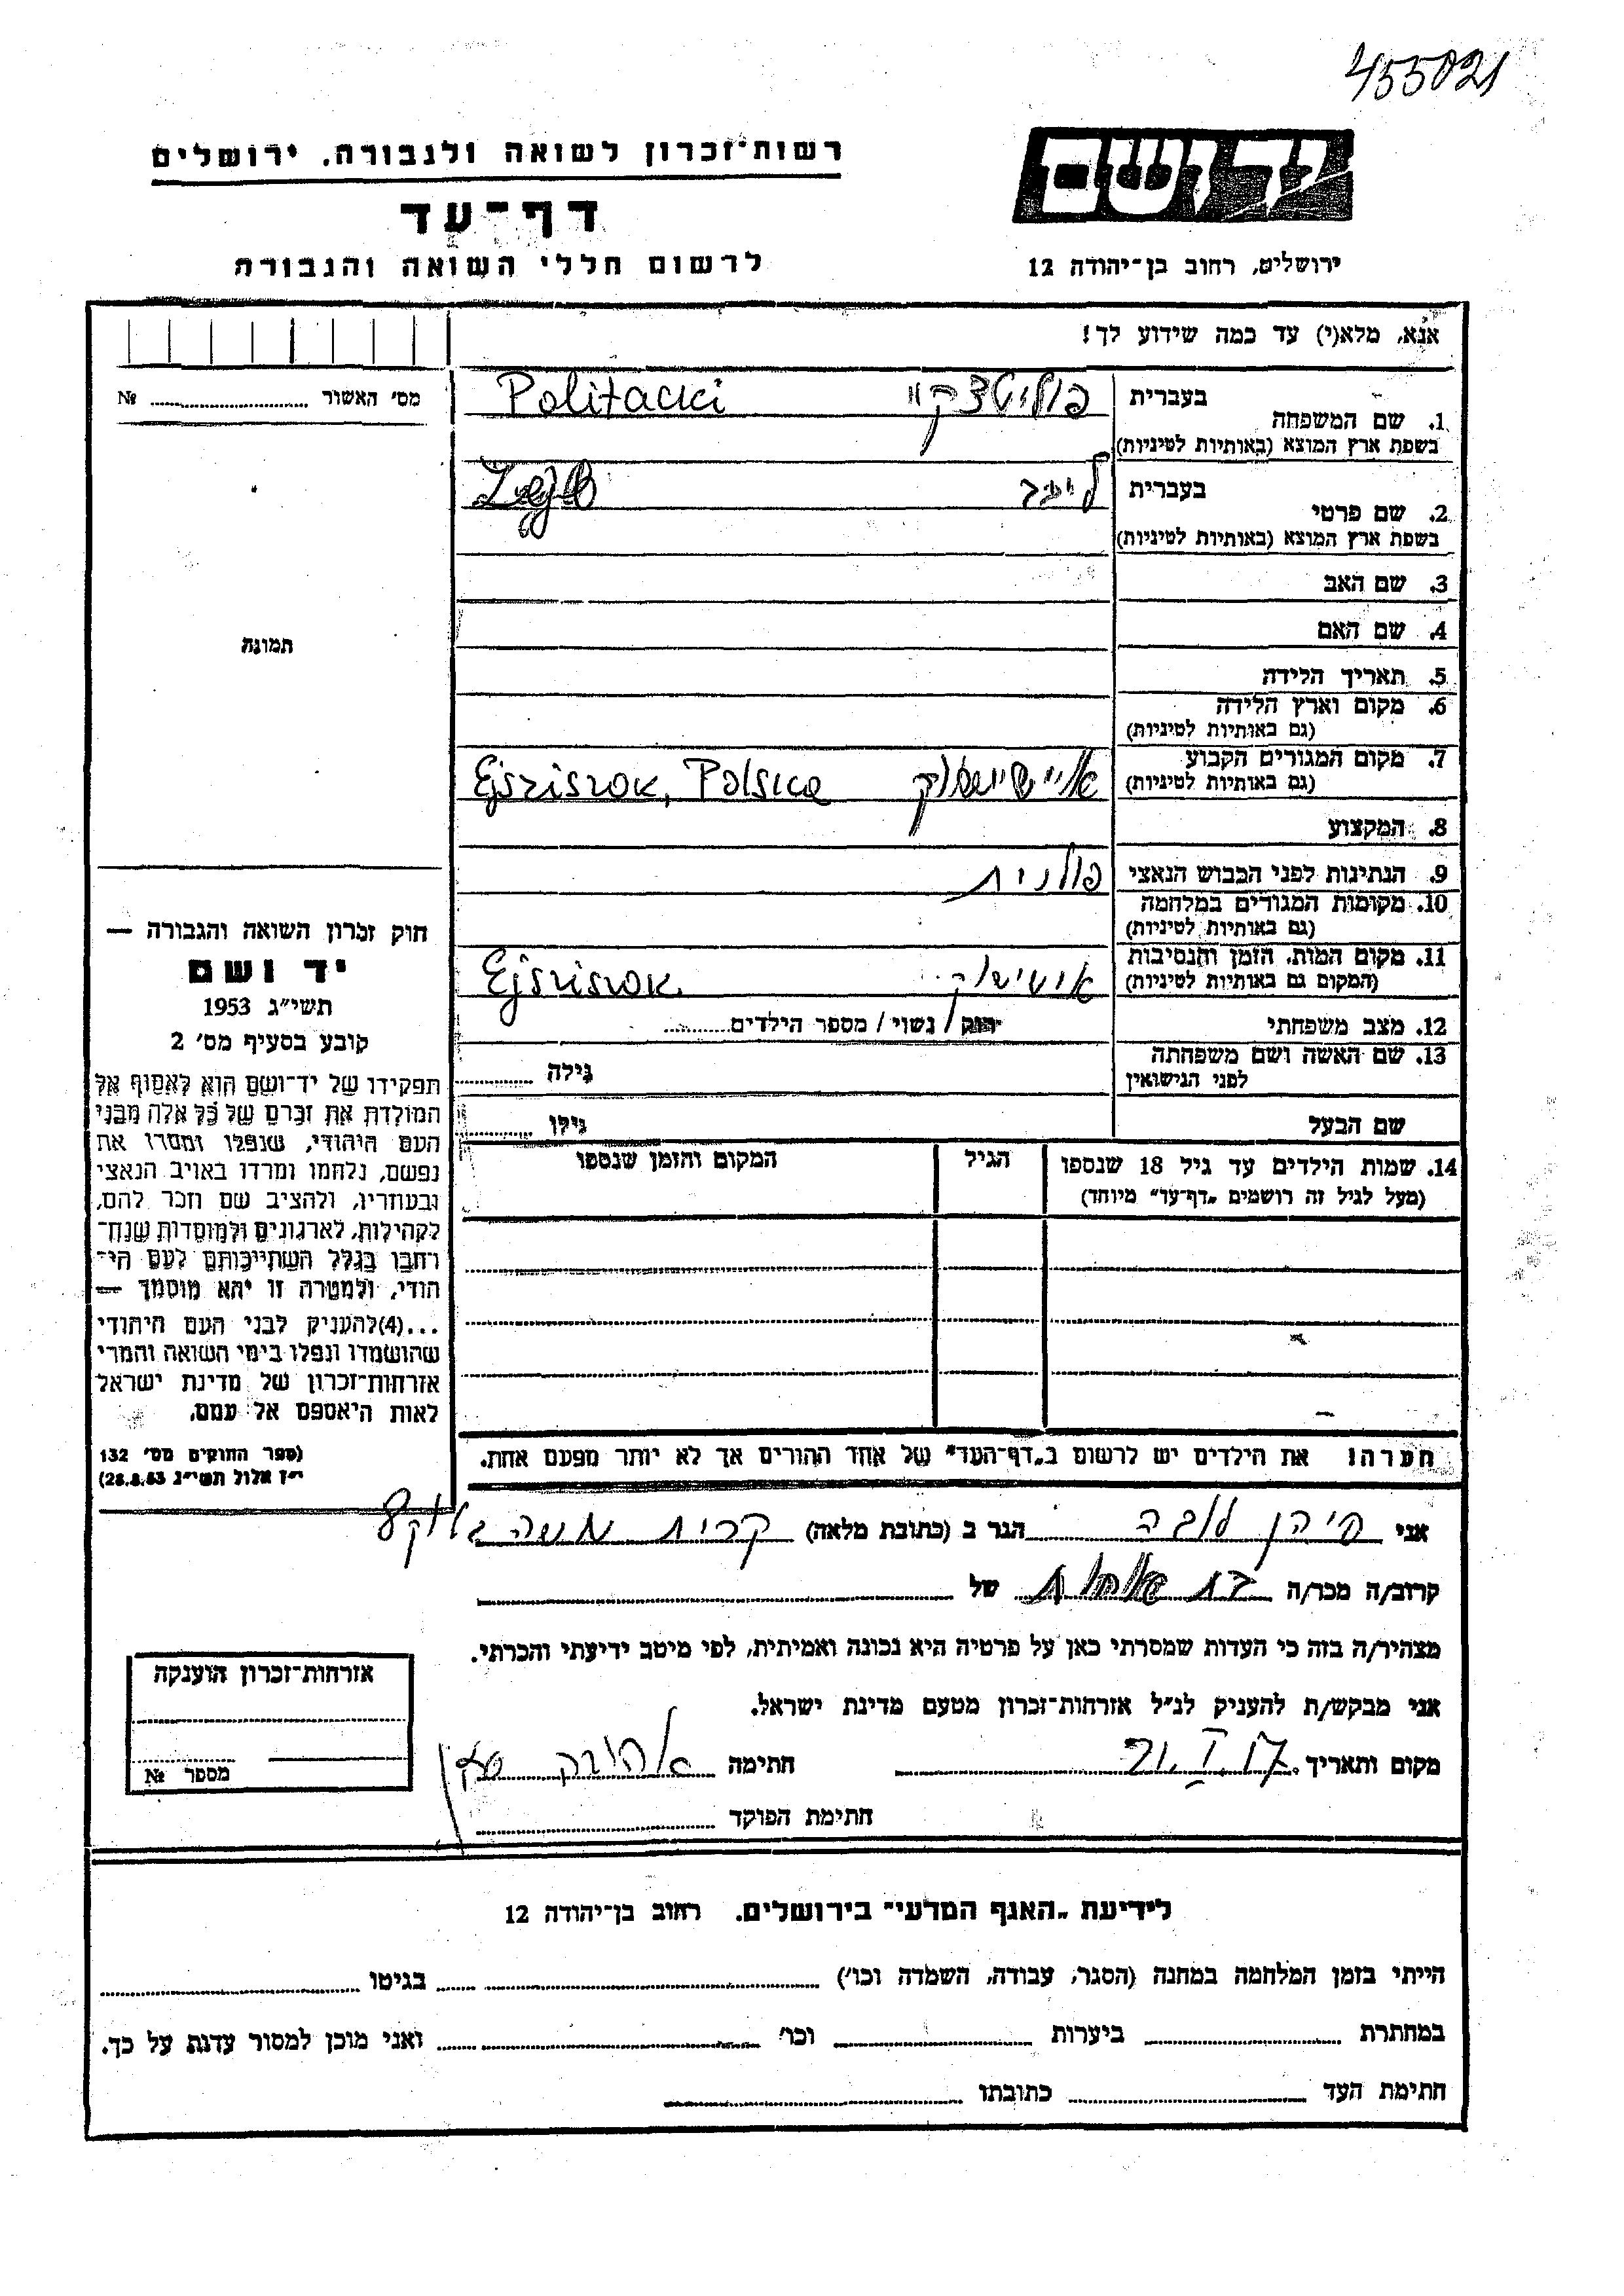 455021
יד ושם
רשות־זכרון לשואה ולגבורה, ירושלים
דף־עד
לרשום חללי השואה והגבורה
ירושלים, רחוב בן־יהודה 12
אנא, מלא(י) עד כמה שידוע לך!
מס׳ האשור № 
תמונה
1. שם המשפחה
בעברית פוליטצקי Politacki
בשפת ארץ המוצא (באותיות לטיניות)
2. שם פרטי
בעברית לייב Lejb
בשפת ארץ המוצא (באותיות לטיניות)
3. שם האב
4. שם האם
5. תאריך הלידה
6. מקום וארץ הלידה
(גם באותיות לטיניות)
7. מקום המגורים הקבוע Ejsziszok, Polska
(גם באותיות לטיניות)
8. המקצוע
9. הנתינות לפני הכבוש הנאצי פולנית
10. מקומות המגורים במלחמה
(גם באותיות לטיניות)
11. מקום המות, הזמן והנסיבות Ejsziszok
(המקום גם באותיות לטיניות)
12. מצב משפחתי רווק / נשוי / מספר הילדים
13. שם האשה ושם משפחתה גילה
לפני הנישואין
שם הבעל גילו
14. שמות הילדים עד גיל 18 שנספו הגיל המקום והזמן שנספו
(מעל לגיל זה רושמים „דף־עד” מיוחד)
הערה! את הילדים יש לרשום ב„דף־העד” של אחד ההורים אך לא יותר מפעם אחת.
חוק זכרון השואה והגבורה —
יד ושם
תשי״ג 1953
קובע בסעיף מס׳ 2
תפקידו של יד־ושם הוא לאסוף אל
המולדת את זכרם של כל אלה מבני
העם היהודי, שנפלו ומסרו את
נפשם, נלחמו ומרדו באויב הנאצי
ובעוזריו, ולהציב שם וזכר להם,
לקהילות, לארגונים ולמוסדות שנח־
רחבו בגלל השתייכותם לעם הי־
הודי, ולמטרה זו יהא מוסמך —
...(4)להעניק לבני העם היהודי
שהושמדו ונפלו בימי השואה והמרי
אזרחות־זכרון של מדינת ישראל
לאות היאספם אל עמם.
(ספר החוקים מס׳ 132
י״ז אלול תשי״ג 28.8.53)
אני לובה הגר ב (כתובת מלאה) קרית משה
קרוב/ה מכר/ה של
מצהיר/ה בזה כי העדות שמסרתי כאן על פרטיה היא נכונה ואמיתית, לפי מיטב ידיעתי והכרתי.
אני מבקש/ת להעניק לנ״ל אזרחות־זכרון מטעם מדינת ישראל.
מקום ותאריך חתימה
חתימת הפוקד
אזרחות־זכרון הוענקה
מספר №
לידיעת „האגף המדעי” בירושלים. רחוב בן־יהודה 12
הייתי בזמן המלחמה במחנה (הסגר, עבודה, השמדה וכו׳) בגיטו
במחתרת ביערות וכו׳ ואני מוכן למסור עדות על כך.
חתימת העד כתובתו